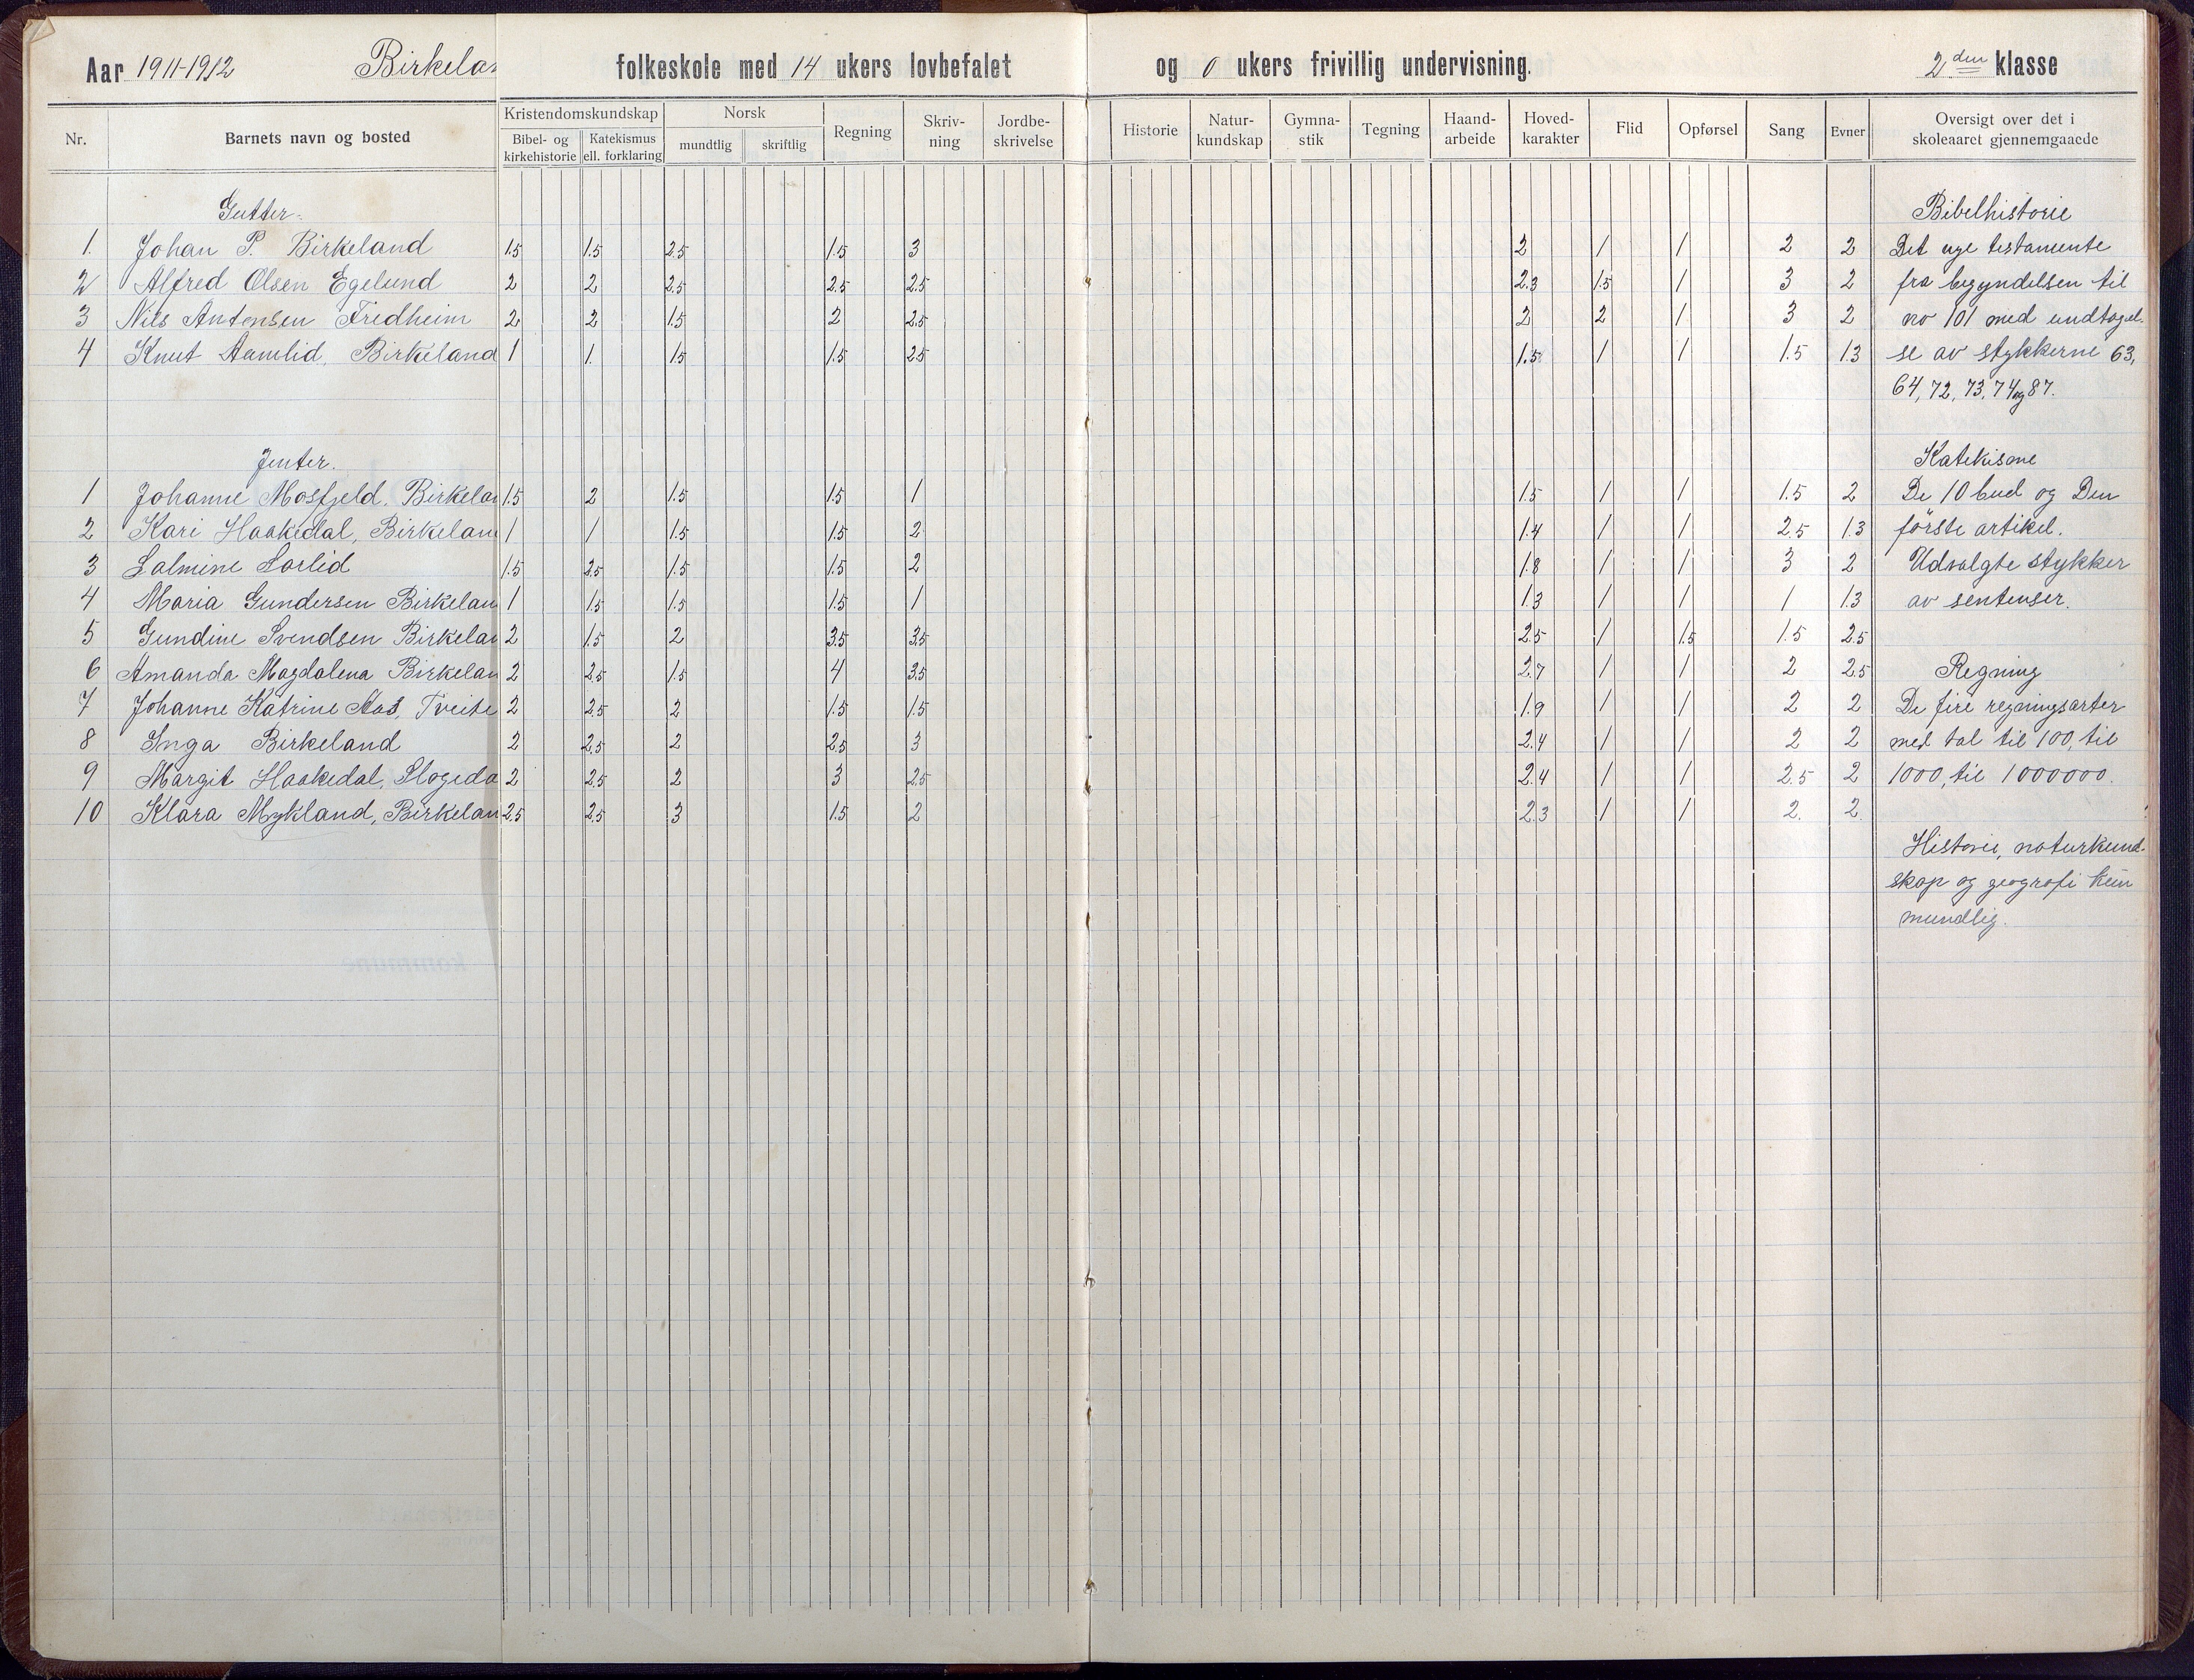 Aar 1911-1912 Birkelan folkeskole med 14 ukers lovbefalet og 0 ukers frivillig undervisning. 2den klasse
Nr. Barnets navn og bosted Kristendomskundskap Bibel- og kirkehistorie Katekismus ell. forklaring Norsk mundtlig skriftlig Regning Skriv-ning Jordbe-skrivelse Historie Natur-kundskap Gymna-stik Tegning Haand-arbeide Hoved-karakter Flid Opførsel Sang Evner Oversigt over det i skoleaaret gjennemgaaede
Gutter. Bibelhistorie
1. Johan P. Birkeland 1.5 1.5 2.5 1.5 3 2 1 1 2 2 Det nye testamente
2 Alfred Olsen Egelund 2 2 2.5 2.5 2.5 2.3 1.5 1 3 2 fra begyndelsen til
3 Nils Antonsen Fredheim 2 2 1.5 2 2.5 2 2 1 3 2 no 101 med undtagel-
4 Knut Aamlid, Birkeland 1 1. 1.5 1.5 2.5 1.5 1 1 1.5 1.3 se av stykkerne 63,
64, 72, 73, 74 og 87.
Jenter. Katekisme
1 Johanne Mosfjeld. Birkelan 1.5 2 1.5 1.5 1 1.5 1 1 1.5 2 De 10 bud og Den
2 Kari Haakedal, Birkelan 1 1 1.5 1.5 2 1.4 1 1 2.5 1.3 förste artikel.
3 Salmine Lorlid 1.5 2.5 1.5 1.5 2 1.8 1 1 3 2 Udvalgte stykker
4 Maria Gundersen Birkelan 1 1.5 1.5 1.5 1 1.3 1 1 1 1.3 av sentenser.
5 Gundine Svendsen Birkelan 2 1.5 2 3.5 3.5 2.5 1 1.5 1.5 2.5
6 Amanda Magdalena Birkelan 2 2.5 1.5 4 3.5 2.7 1 1 2 2.5 Regning
7 Johanne Katrine Aas, Tveite 2 2.5 2 1.5 1.5 1.9 1 1 2 2 De fire regningsarter
8 Inga Birkeland 2 2.5 2 2.5 3 2.4 1 1 2 2 med tal til 100, til
9 Margit Haakedal, Flogeda 2 2.5 2 3 2.5 2.4 1 1 2.5 2 1000, til 1000000.
10 Klara Mykland, Birkelan 2.5 2.5 3 1.5 2 2.3 1 1 2. 2.
Historie, naturkund-
skap og geografi kun
mundlig.